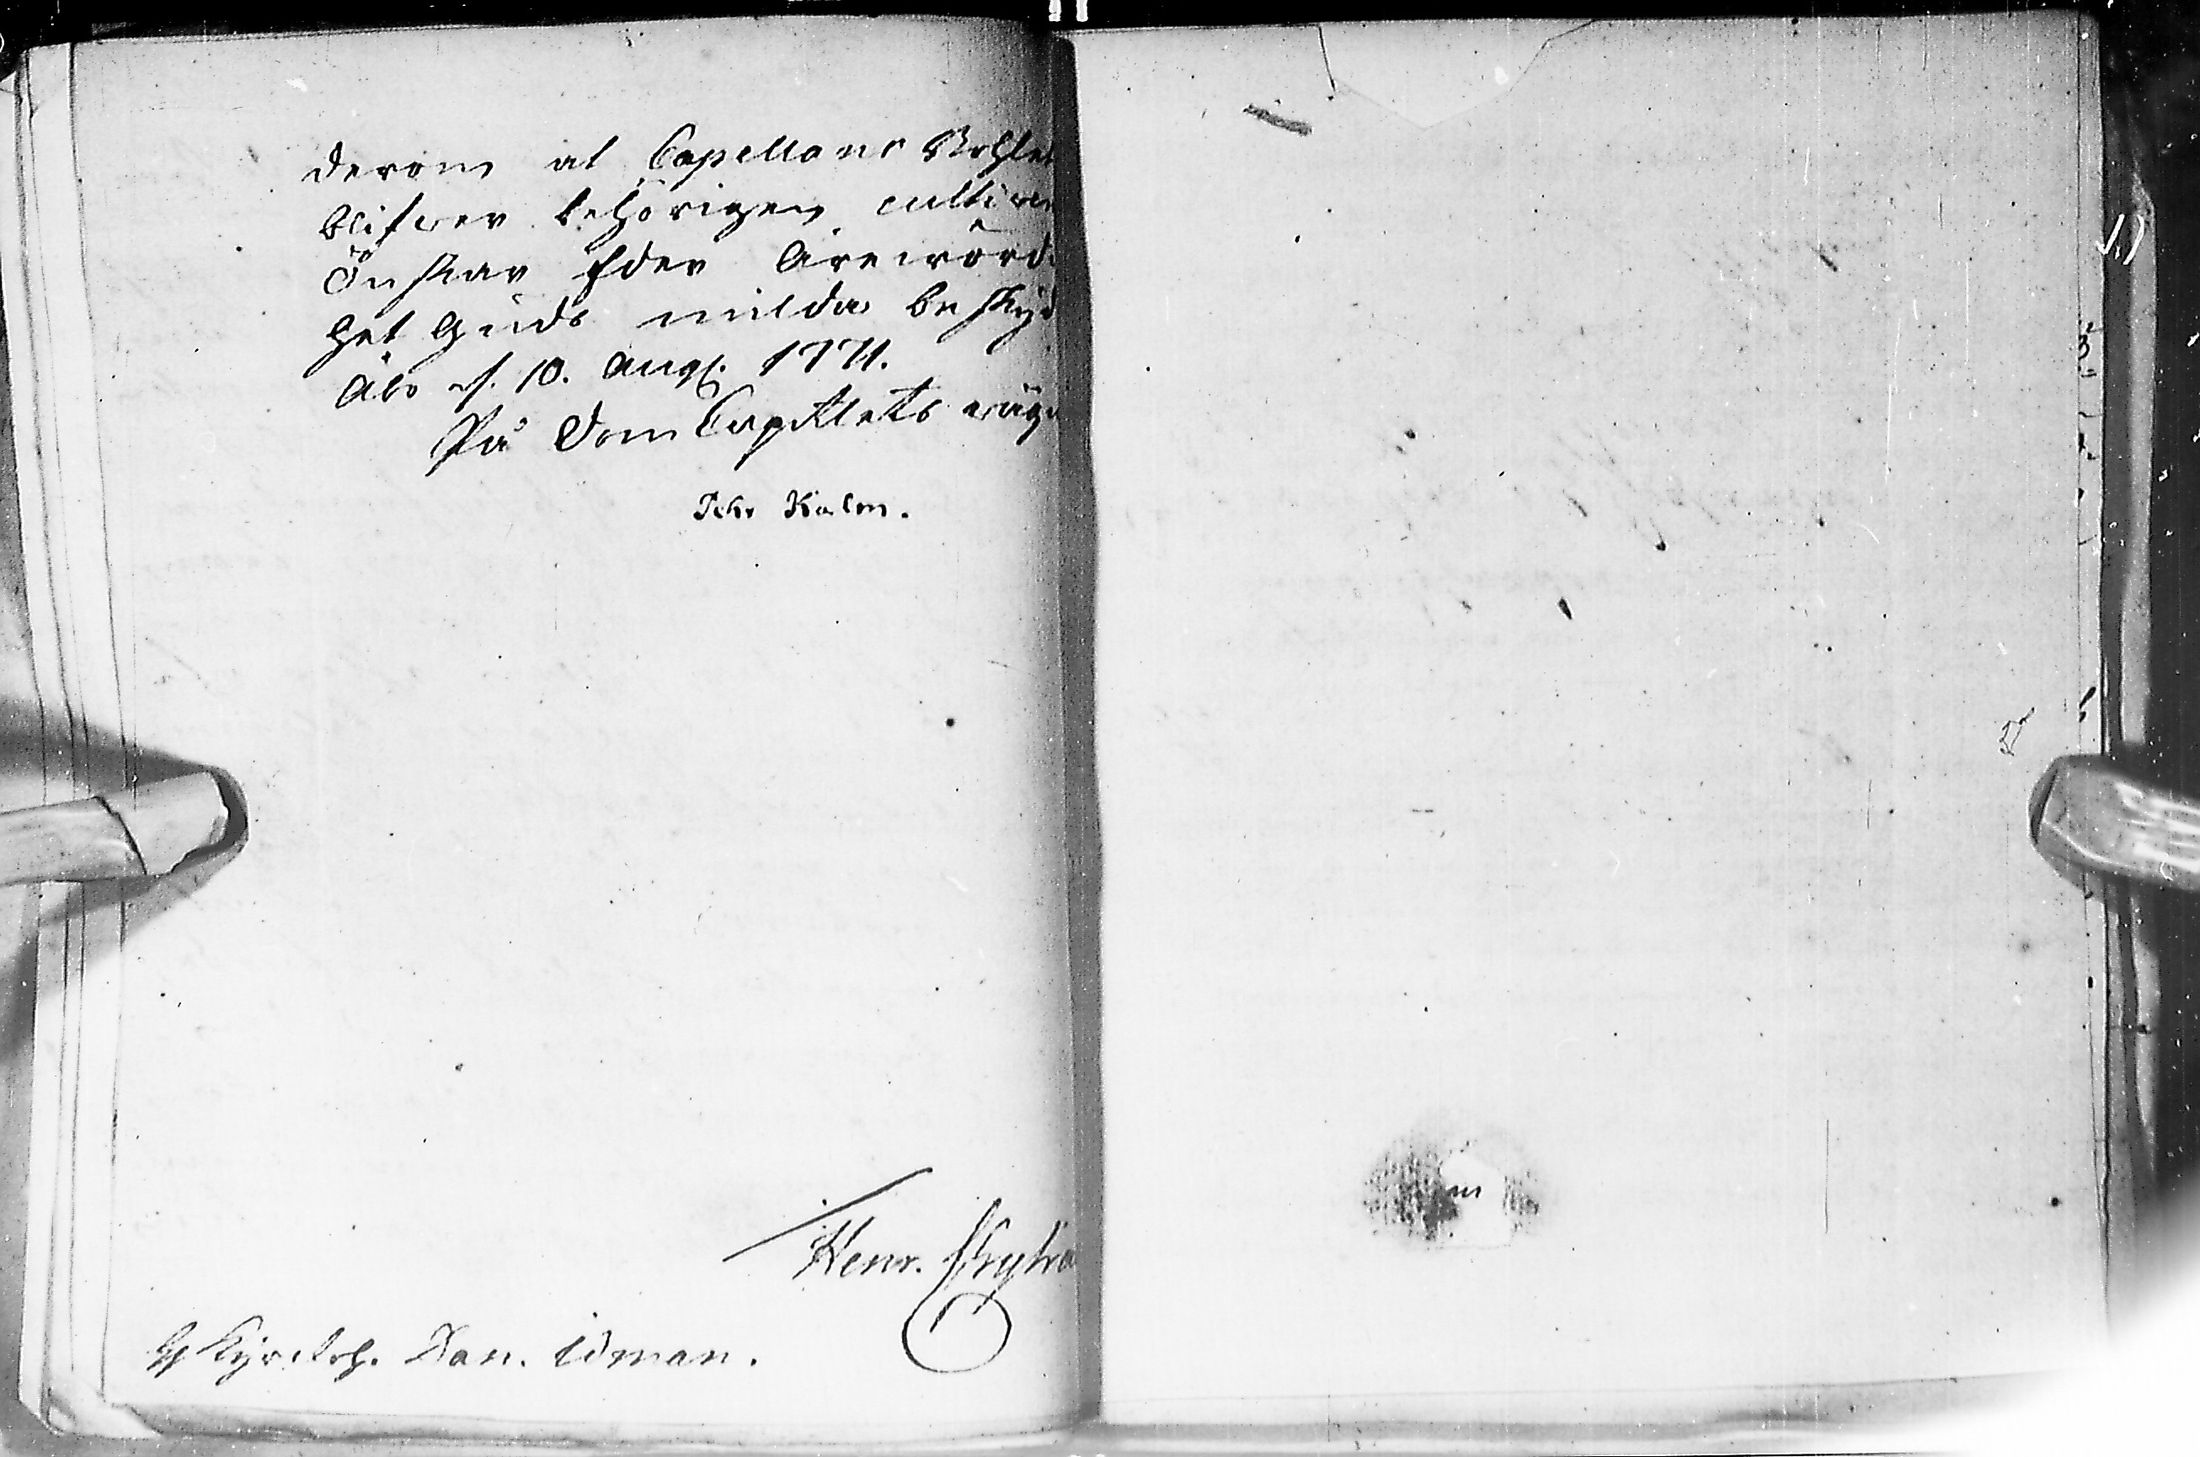 derom at Capellans Bohle
blifwer behörigen cultiver
Önskar Eder Ärewörd
het Guds milda beskyd
Åbo d. 10. Aug. 1771.
På Dom Capitlets wägn
Pehr Kalm.
Henr. Skytra
Kyrckoh. Dan. Idman.